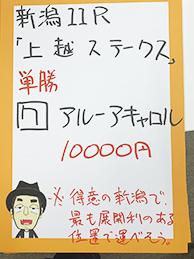 新潟11R
「上越ステークス」
単勝
7 アルーアキャロル
10000円
※得意の新潟で、
最も展開利のある
位置で運べそう。